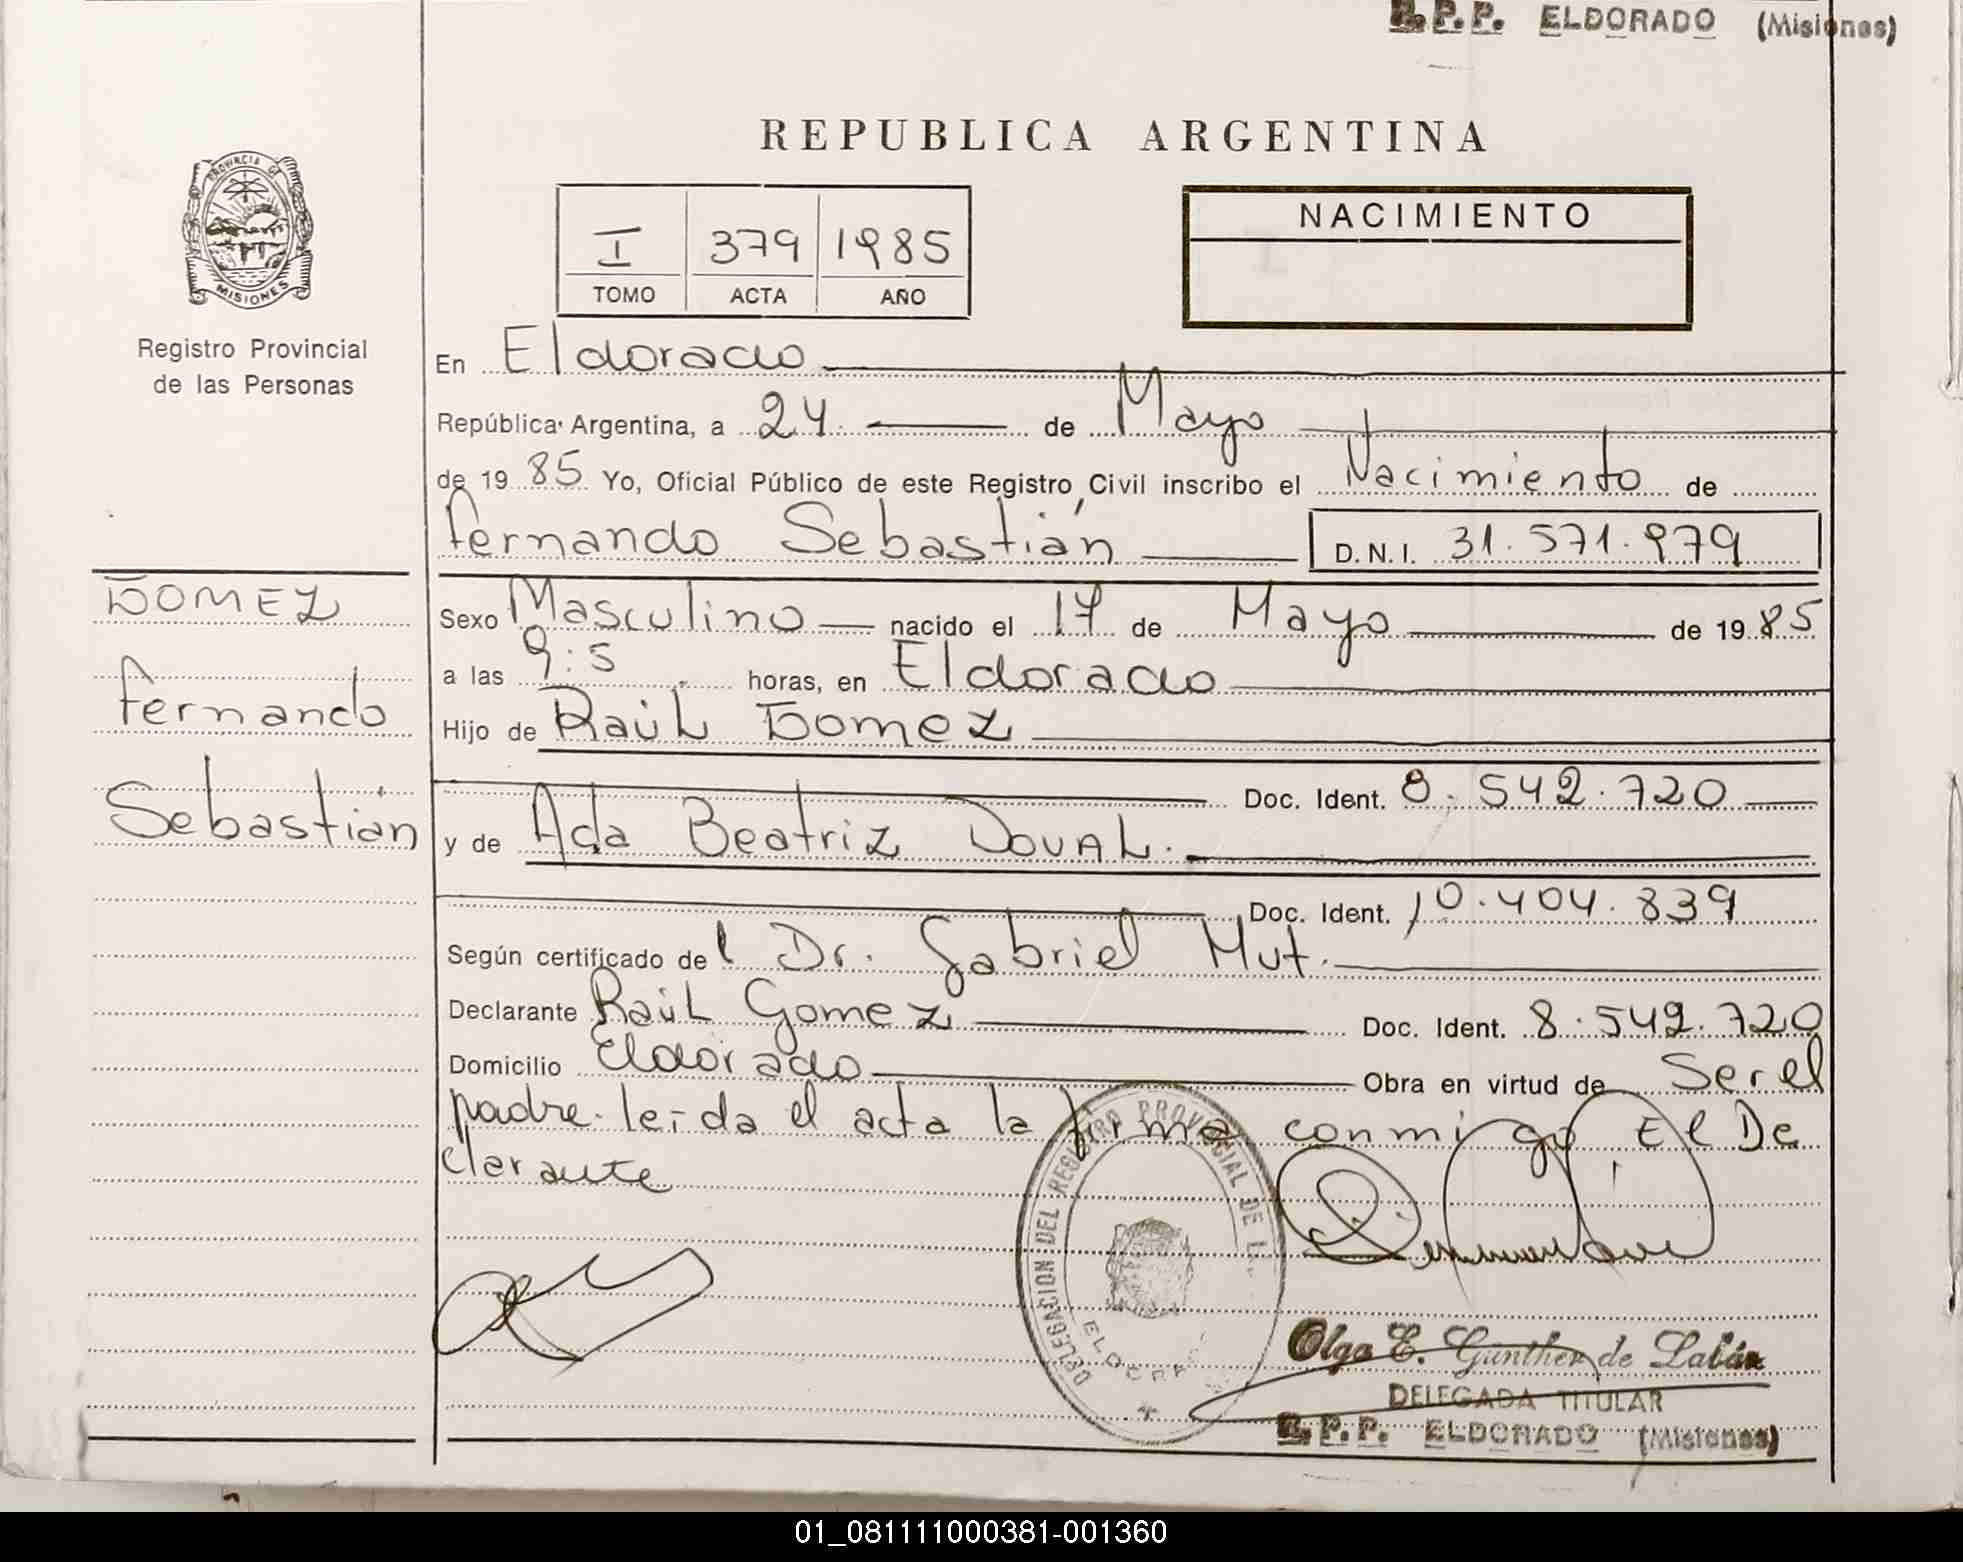 R.P.P. ELDORADO (Misiones)
REPUBLICA ARGENTINA
PROVINCIA DE
MISIONES
Registro Provincial
de las Personas
I 379 1985
TOMO ACTA AÑO
NACIMIENTO
En Eldorado
República Argentina, a 24 de Mayo
de 1985 Yo, Oficial Público de este Registro Civil inscribo el Nacimiento de
Fernando Sebastián D.N.I. 31.571.979
GOMEZ
Fernando
Sebastián
Sexo Masculino nacido el 17 de Mayo de 1985
a las 9:5 horas, en Eldorado
Hijo de Raúl Gomez
Doc. Ident. 8.542.720
y de Ada Beatriz DOVAL.
Doc. Ident. 10.404.839
Según certificado del Dr. Gabriel Mut.
Declarante Raúl Gomez Doc. Ident. 8.542.720
Domicilio Eldorado Obra en virtud de Ser el
padre. leida el acta la firma conmigo El De
clarante
DELEGACION DEL REGISTRO PROVINCIAL DE L
Olga E. Gunther de Labán
DELEGADA TITULAR
R.P.P. ELDORADO (Misiones)
01_081111000381-001360